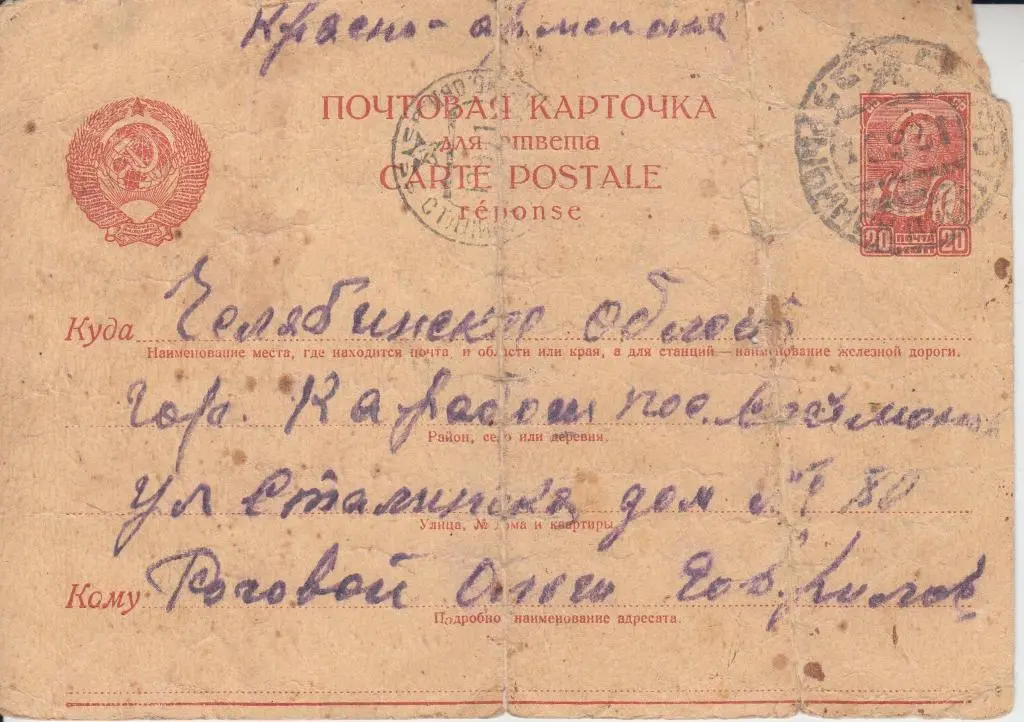 Красно-арменская
ПОЧТОВАЯ КАРТОЧКА
для ответа
CARTE POSTALE
réponse
20 ПОЧТА 20
Куда Челябинская облост
Наименование места, где находится почта, и области или края, а для станций—наименование железной дороги.
гор. Карабош пос.
Район, село или деревня.
ул Сталинска дом № 80
Улица, № дома и квартиры.
Кому Роговой
Подробно наименование адресата.